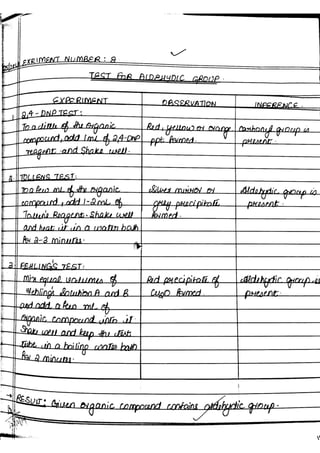 EXPERIMENT NUMBER : 8
TEST FOR ALDEHYDIC GROUP.
EXPERIMENT OBSERVATION INFERENCE
1. 2,4-DNP TEST:
To a little of the Organic Red, yellow or orange Carbonyl group is
compound, add 1mL of 2,4-DNP ppt formed. present.
reagent and Shake well.
2. TOLLENS TEST:
To a few mL of the organic Silver mirror or Aldehydic group is
compound, add 1-2mL of grey precipitate present.
Tollen's Reagent. Shake well formed.
and heat it in a water bath
for 2-3 minutes.
3. FEHLING'S TEST:
Mix equal volumes of Red precipitate of Aldehydic group is
Fehlings Solution A and B Cu2O formed. present.
and add a few mL of
Organic Compound into it.
Shake well and keep the test
tube in a boiling water bath
for 2 minutes.
→ RESULT: Given organic compound contains aldehydic group.